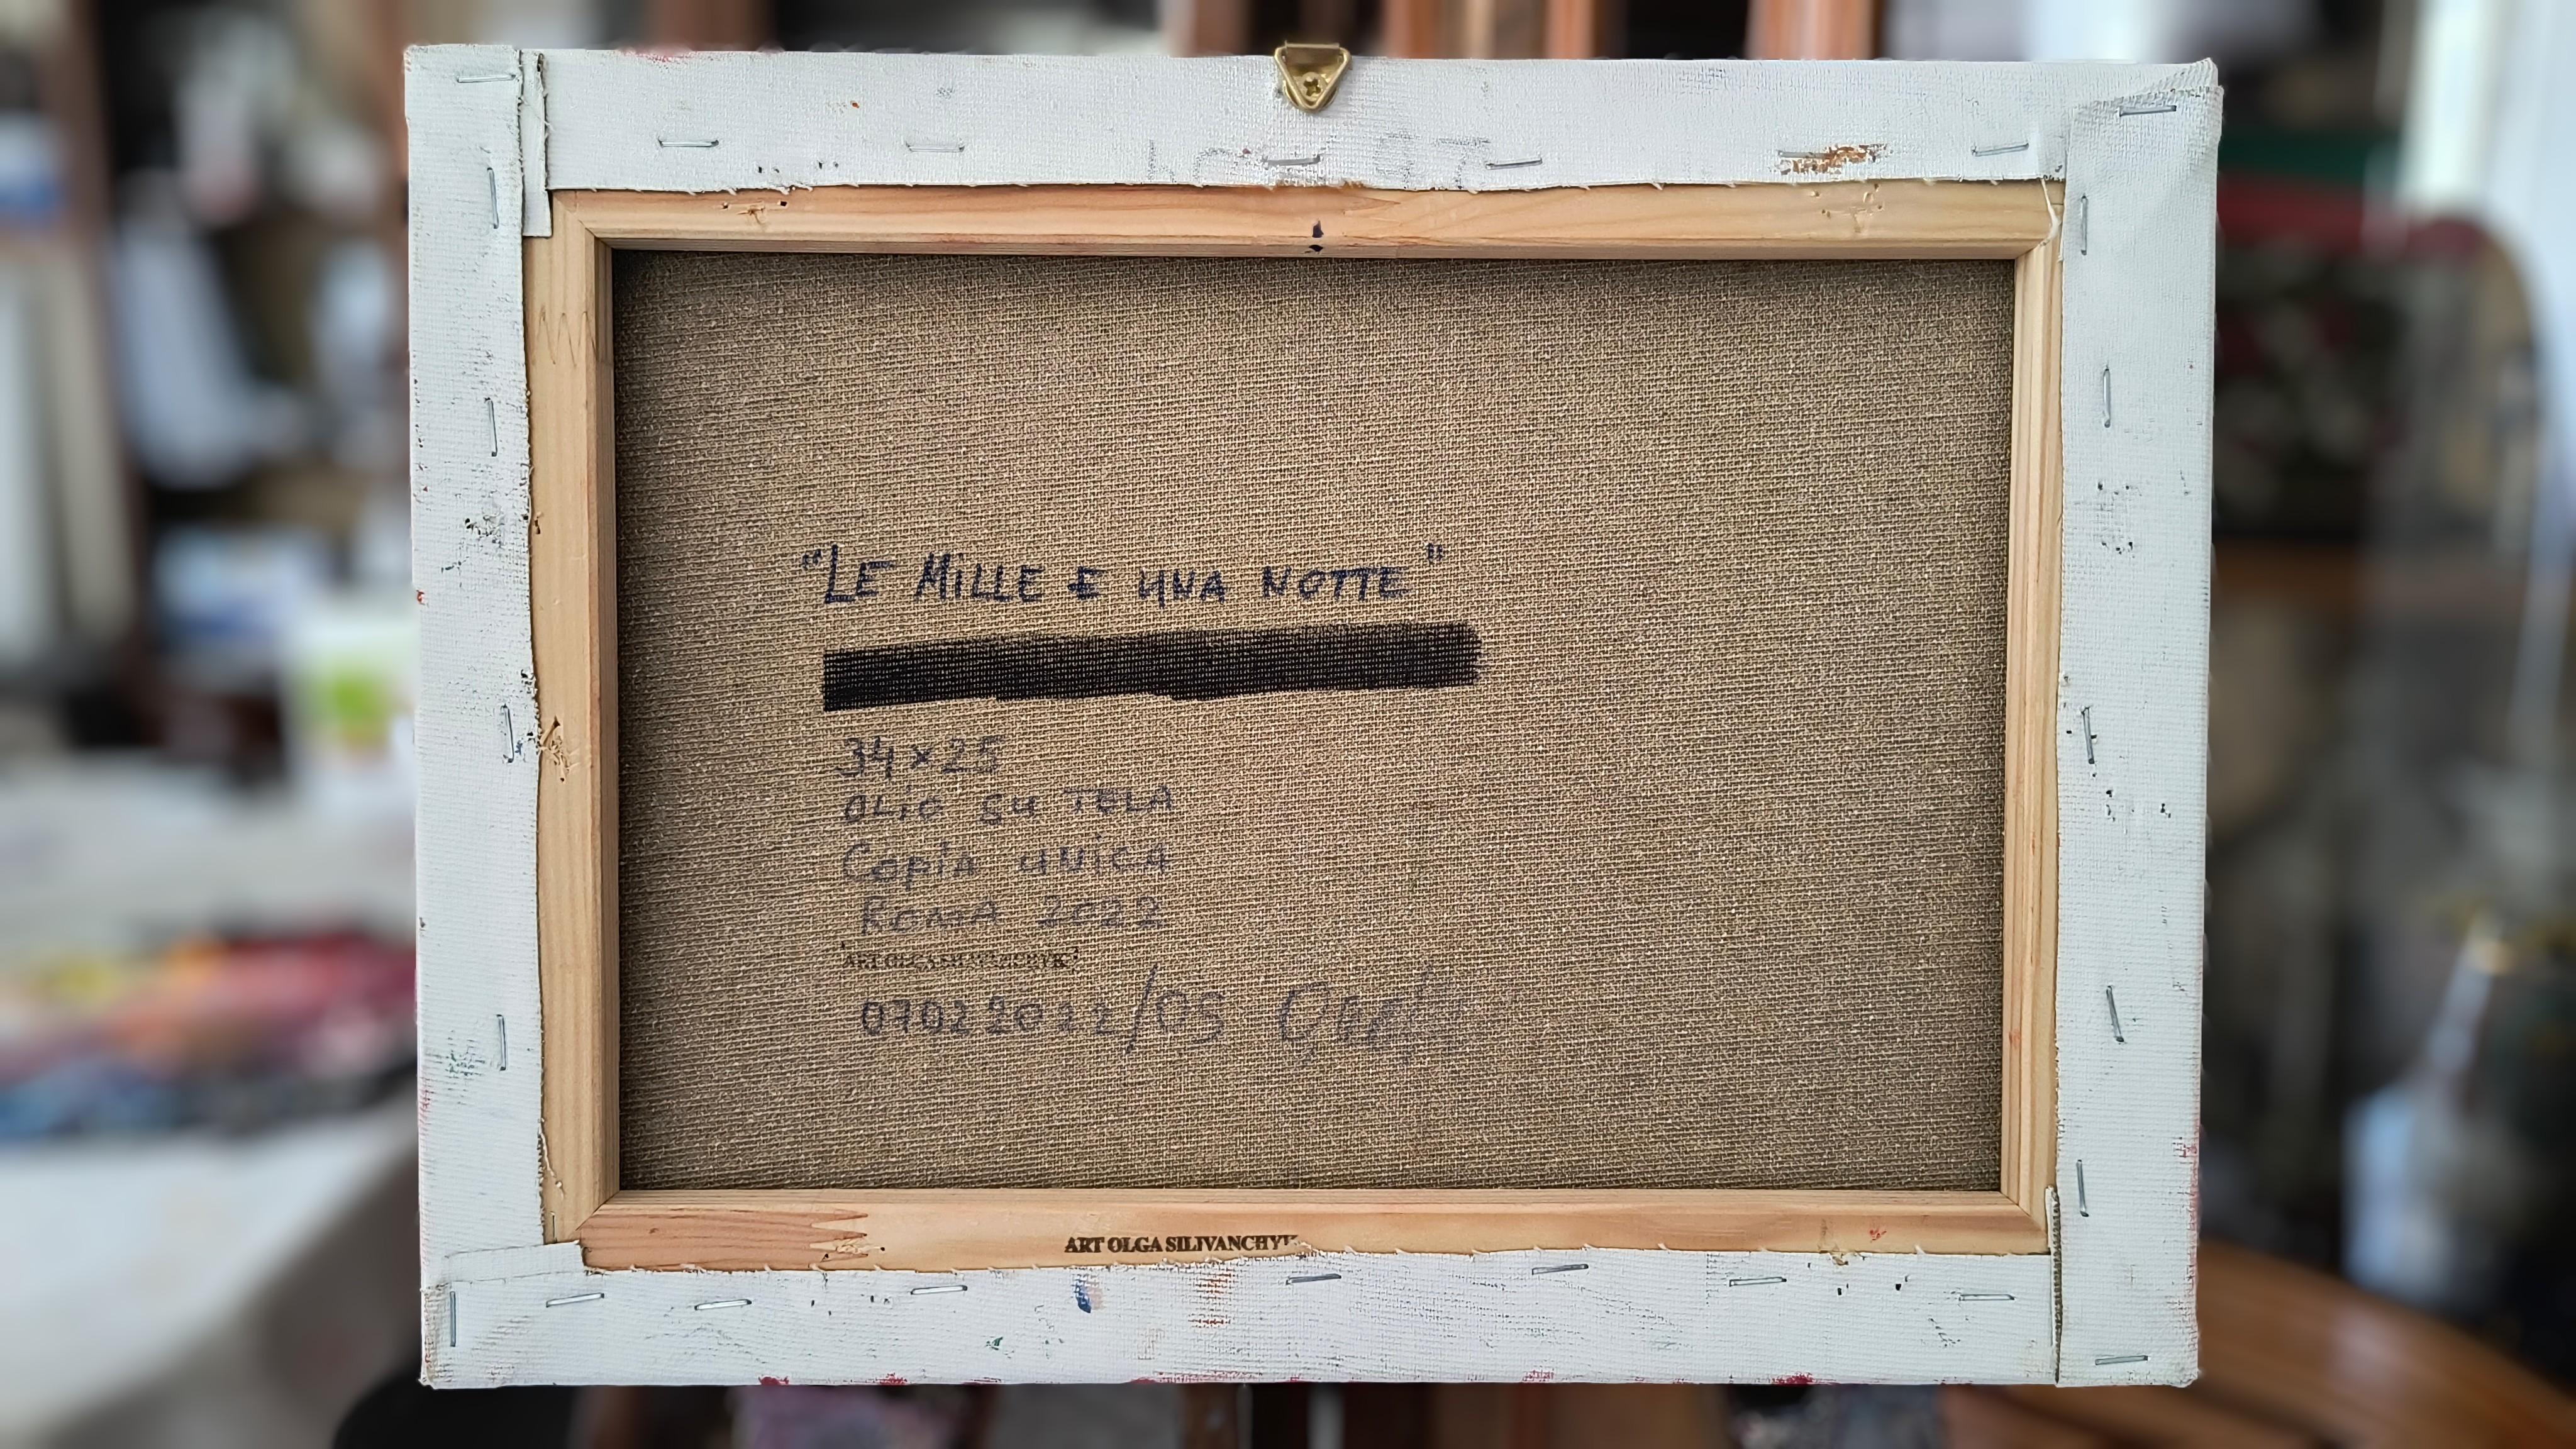 "LE MILLE E UNA NOTTE"
34x25
OLiO SU TELA
Copia unica
ROMA 2022
ART OLGA SILIVANCHYK
07022022/05
ART OLGA SILIVANCHYK